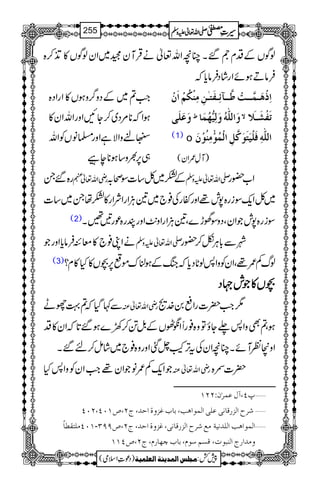 سیرتِ مصطفیٰ صلی اللہ تعالیٰ علیہ وسلم 255
لوگوں کے قدم جم گئے۔ چنانچہ اللہ تعالیٰ نے قرآن مجید میں ان لوگوں کا تذکرہ
فرماتے ہوئے ارشاد فرمایا کہ
اِذْ هَمَّتْ طَّآىٕفَتٰنِ مِنْكُمْ اَنْ
تَفْشَلَاۙ-وَ اللّٰهُ وَلِیُّهُمَاؕ-وَ عَلَى
اللّٰهِ فَلْیَتَوَكَّلِ الْمُؤْمِنُوْنَ o (1)
(آل عمران)
جب تم میں کے دو گروہوں کا ارادہ
ہوا کہ نامردی کر جائیں اور اللہ ان کا
سنبھالنے والا ہے اور مسلمانوں کو اللہ
ہی پر بھروسا ہونا چاہیے
اب حضور صلی اللہ تعالیٰ علیہ وسلم کے لشکر میں کل سات سو صحابہ رضی اللہ تعالیٰ عنہم رہ گئے جن
میں کل ایک سو زرہ پوش تھے اور کفار کی فوج میں تین ہزار اشرار کا لشکر تھا جن میں سات
سو زرہ پوش جوان، دو سو گھوڑے، تین ہزار اونٹ اور پندرہ عورتیں تھیں۔(2)
شہر سے باہر نکل کر حضور صلی اللہ تعالیٰ علیہ وسلم نے اپنی فوج کا معائنہ فرمایا اور جو
لوگ کم عمر تھے، ان کو واپس لوٹا دیا کہ جنگ کے ہولناک موقع پر بچوں کا کیا کام؟(3)
بچوں کا جوشِ جہاد
مگر جب حضرت رافع بن خدیج رضی اللہ تعالیٰ عنہ سے کہا گیا کہ تم بہت چھوٹے
ہو، تم بھی واپس چلے جاؤ تو وہ فوراً انگوٹھوں کے بل تن کر کھڑے ہو گئے تاکہ ان کا قد
اونچا نظر آئے۔ چنانچہ ان کی یہ ترکیب چل گئی اور وہ فوج میں شامل کر لئے گئے۔
حضرت سمرہ رضی اللہ تعالیٰ عنہ جو ایک کم عمر نوجوان تھے جب ان کو واپس کیا
......پ٤،آل عمران:١٢٢
......شرح الزرقانی علی المواهب، باب غزوة احد، ج٢،ص٤٠١،٤٠٢
......المواهب اللدنیة مع شرح الزرقانی، غزوة احد، ج٢،ص٣٩٩-٤٠١ملتقطاً
ومدارج النبوت، قسم سوم، باب چهارم، ج٢،ص١١٤
پیش کش: مجلس المدینة العلمیة (دعوتِ اسلامی)